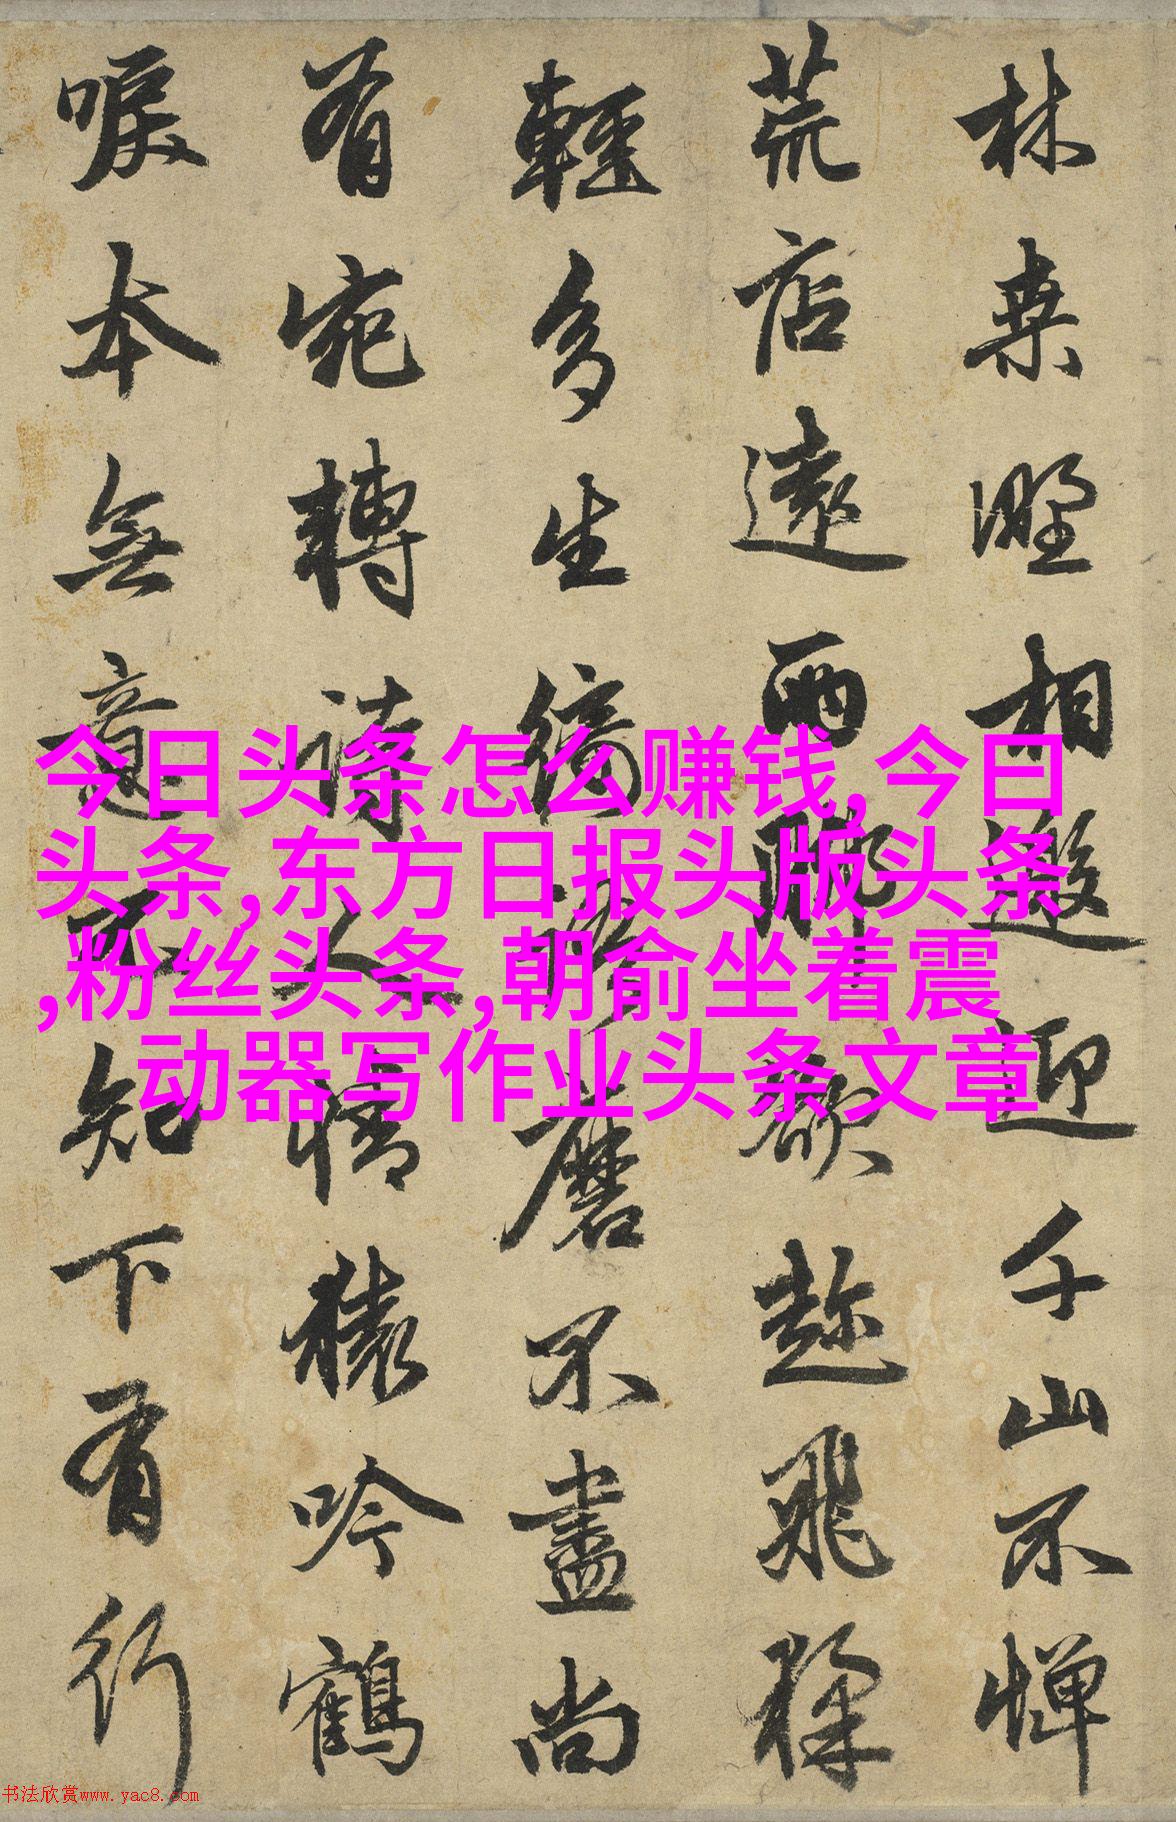 林桒野相邀迎千山不惮
荒店遠兩脚欲趂飛猱
輕多生綺語磨不盡尚
有宛轉詩人情猿吟鶴
唳本無意不知下有行
今日头条怎么赚钱,今曰
头条,东方日报头版头条
,粉丝头条,朝俞坐着震
动器写作业头条文章
书法欣赏www.yac8.com